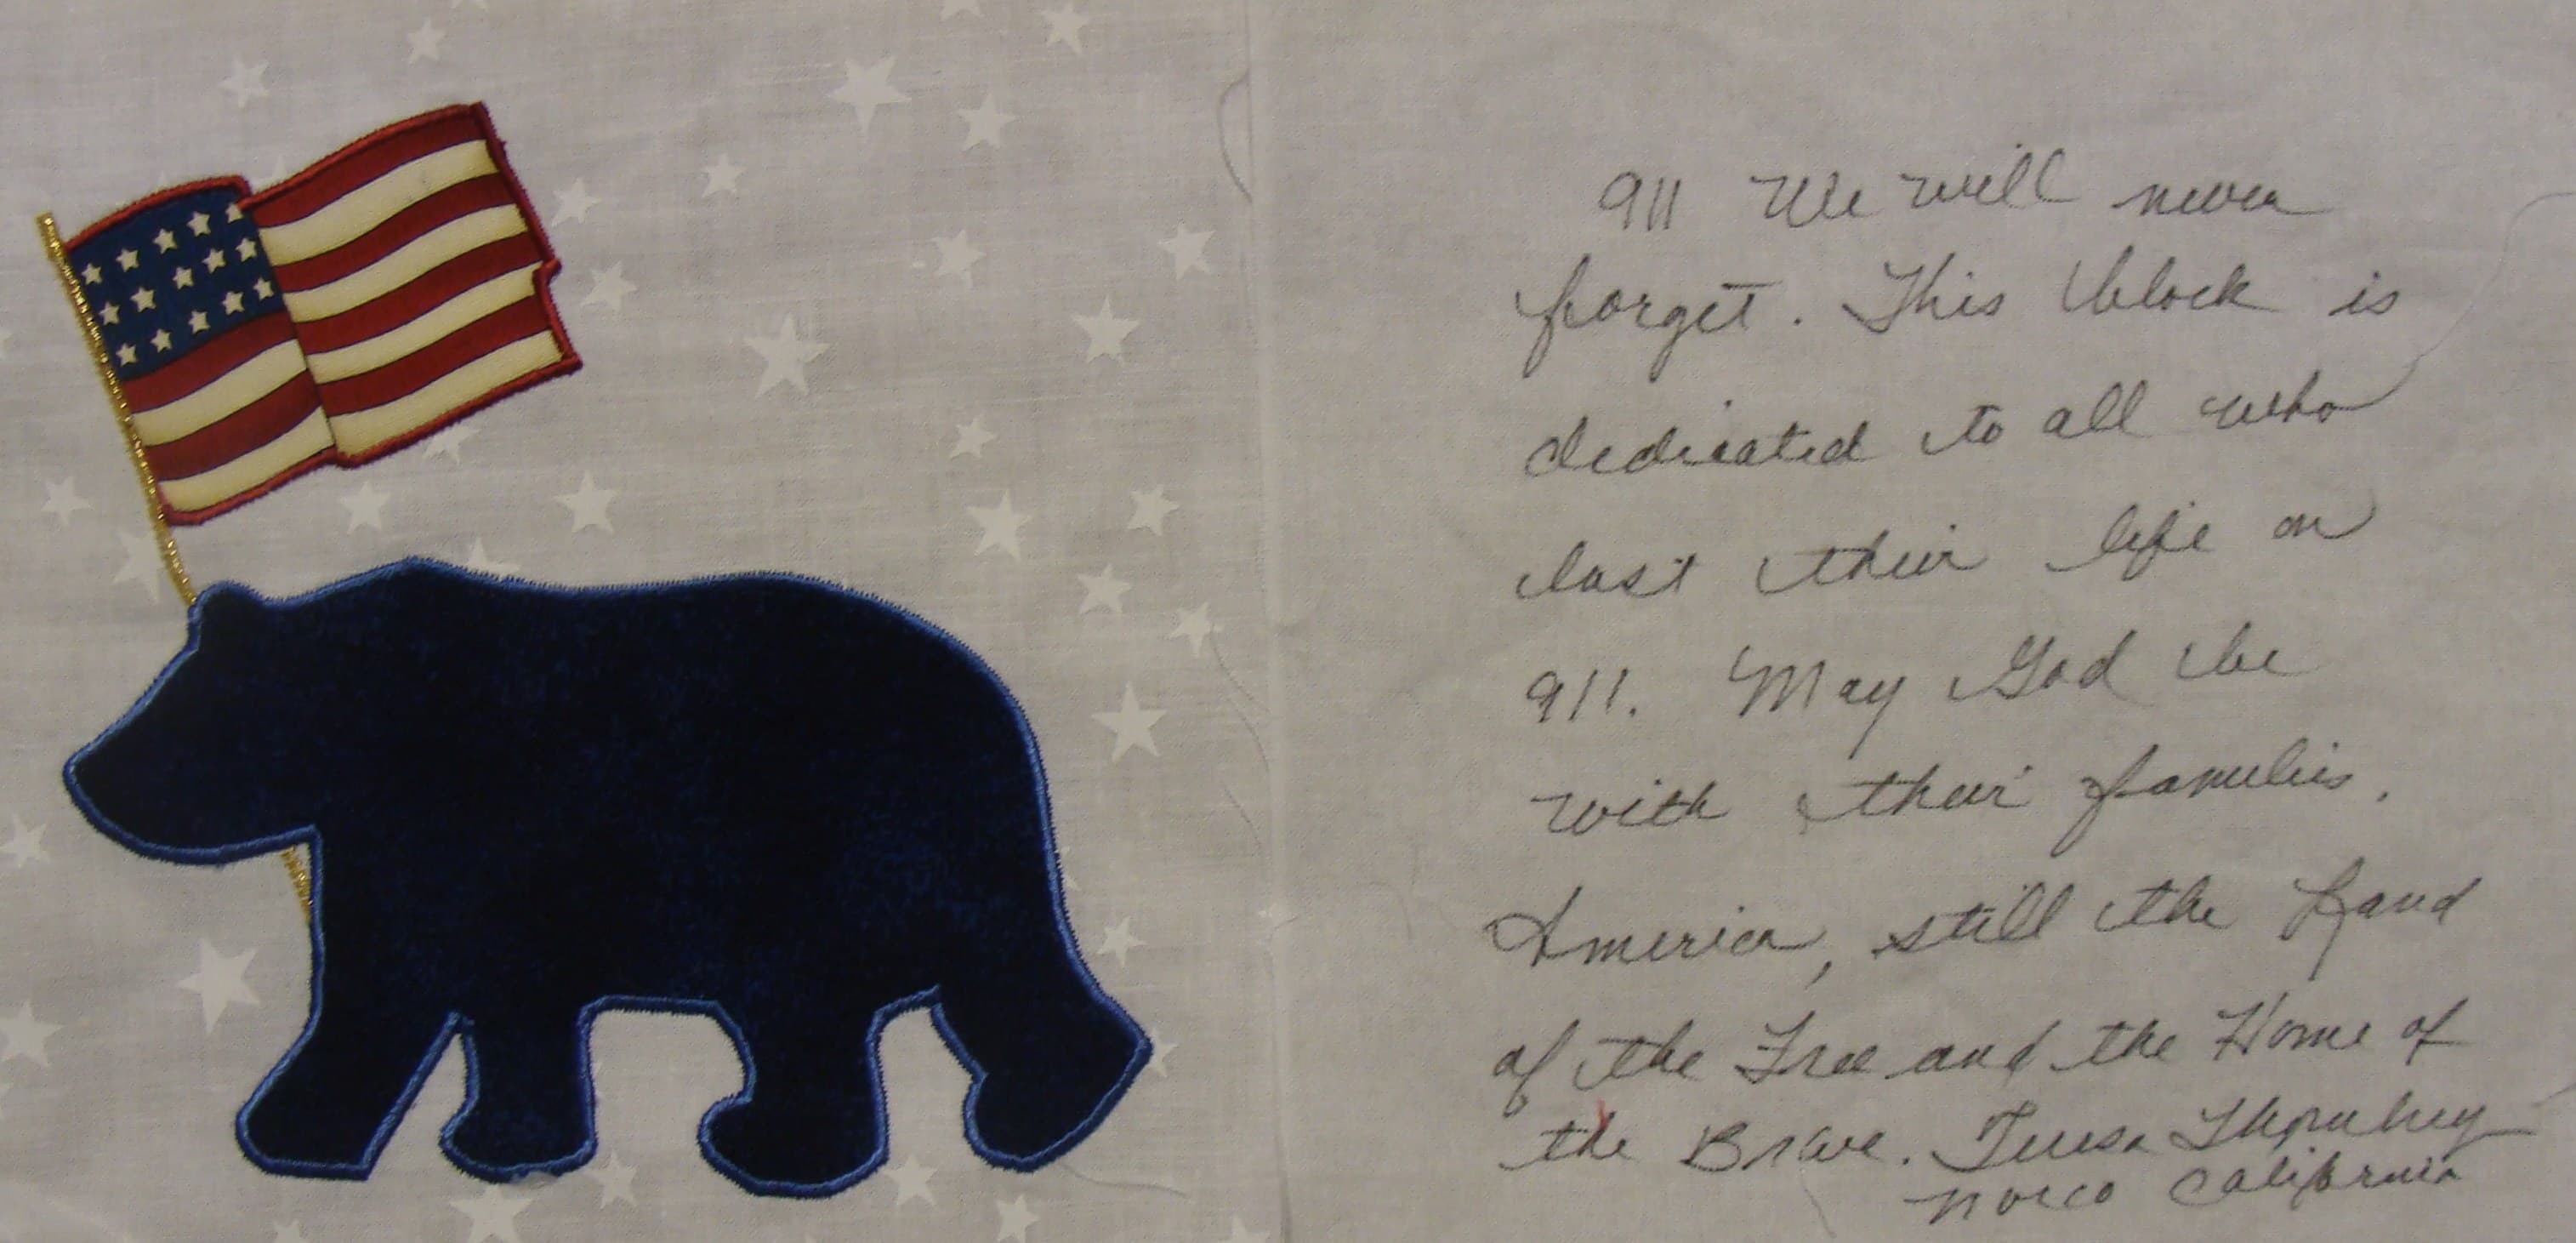 911 We will never
forget. This block is
dedicated to all who
lost their life on
911. May God be
with their families.
America, still the Land
of the Free and the Home of
the Brave. Teresa
Norco California